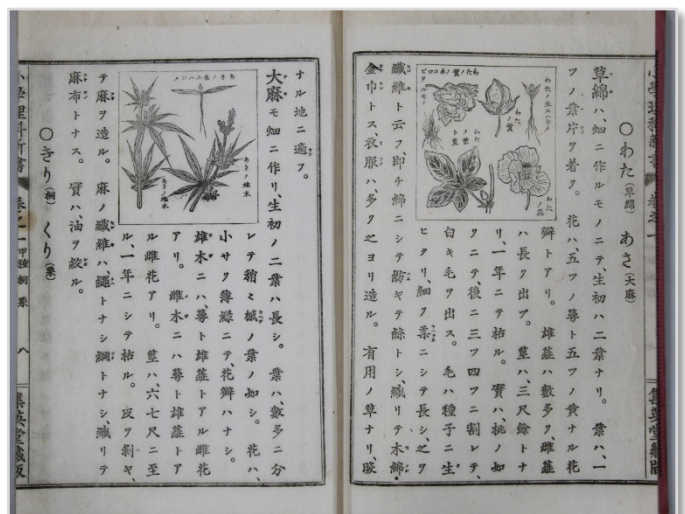 小學理科新書
卷之一
集英堂藏版
○わた(草綿) あさ(大麻)
草綿ハ、畑ニ作ルモノニテ、生初ハ二葉ナリ。葉ハ、一
ツノ葉片ヲ着ク。花ハ、五ツノ蕚ト五ツノ黄ナル花
瓣トアリ。雄蕊ハ數多ク、雌蕊
ハ長ク出ヅ。莖ハ、三尺餘トナ
リ、一年ニテ枯ル。實ハ、桃ノ如
クニテ、後ニ三ツ四ツニ割レテ、
白キ毛ヲ出ス。毛ハ種子ニ生
ヒタリ、細ク柔ニシテ長シ、之ヲ
纖維ト云フ、即チ綿ニシテ紡ギテ絲トシ、織リテ木綿、
金巾トス、衣服ハ、多ク之ヨリ造ル。有用ノ草ナリ、暖
わたノ生エハジメ
わたノ花
わたノ實
わたノ葉ト莖
ナル地ニ適フ。
大麻モ畑ニ作リ、生初ノ二葉ハ長シ。葉ハ、數多ニ分
レテ稍〻槭ノ葉ノ如シ。花ハ、
小サク薄緑ニテ、花瓣ハナシ。
雄木ニハ、蕚ト雄蕊トアル雄花
アリ。雌木ニハ蕚ト雌蕊トア
ル雌花アリ。莖ハ、六七尺ニ至
ル、一年ニシテ枯ル。皮ヲ剥ギ、
テ麻ヲ造ル。麻ノ纖維ハ、繩トナシ綱トナシ、織リテ
麻布トナス。實ハ、油ヲ絞ル。
○きり(桐) くり(栗)
あさノ生エハジメ
あさノ雄木
あさノ雌木
小學理科新書
卷之一
八
集英堂藏版